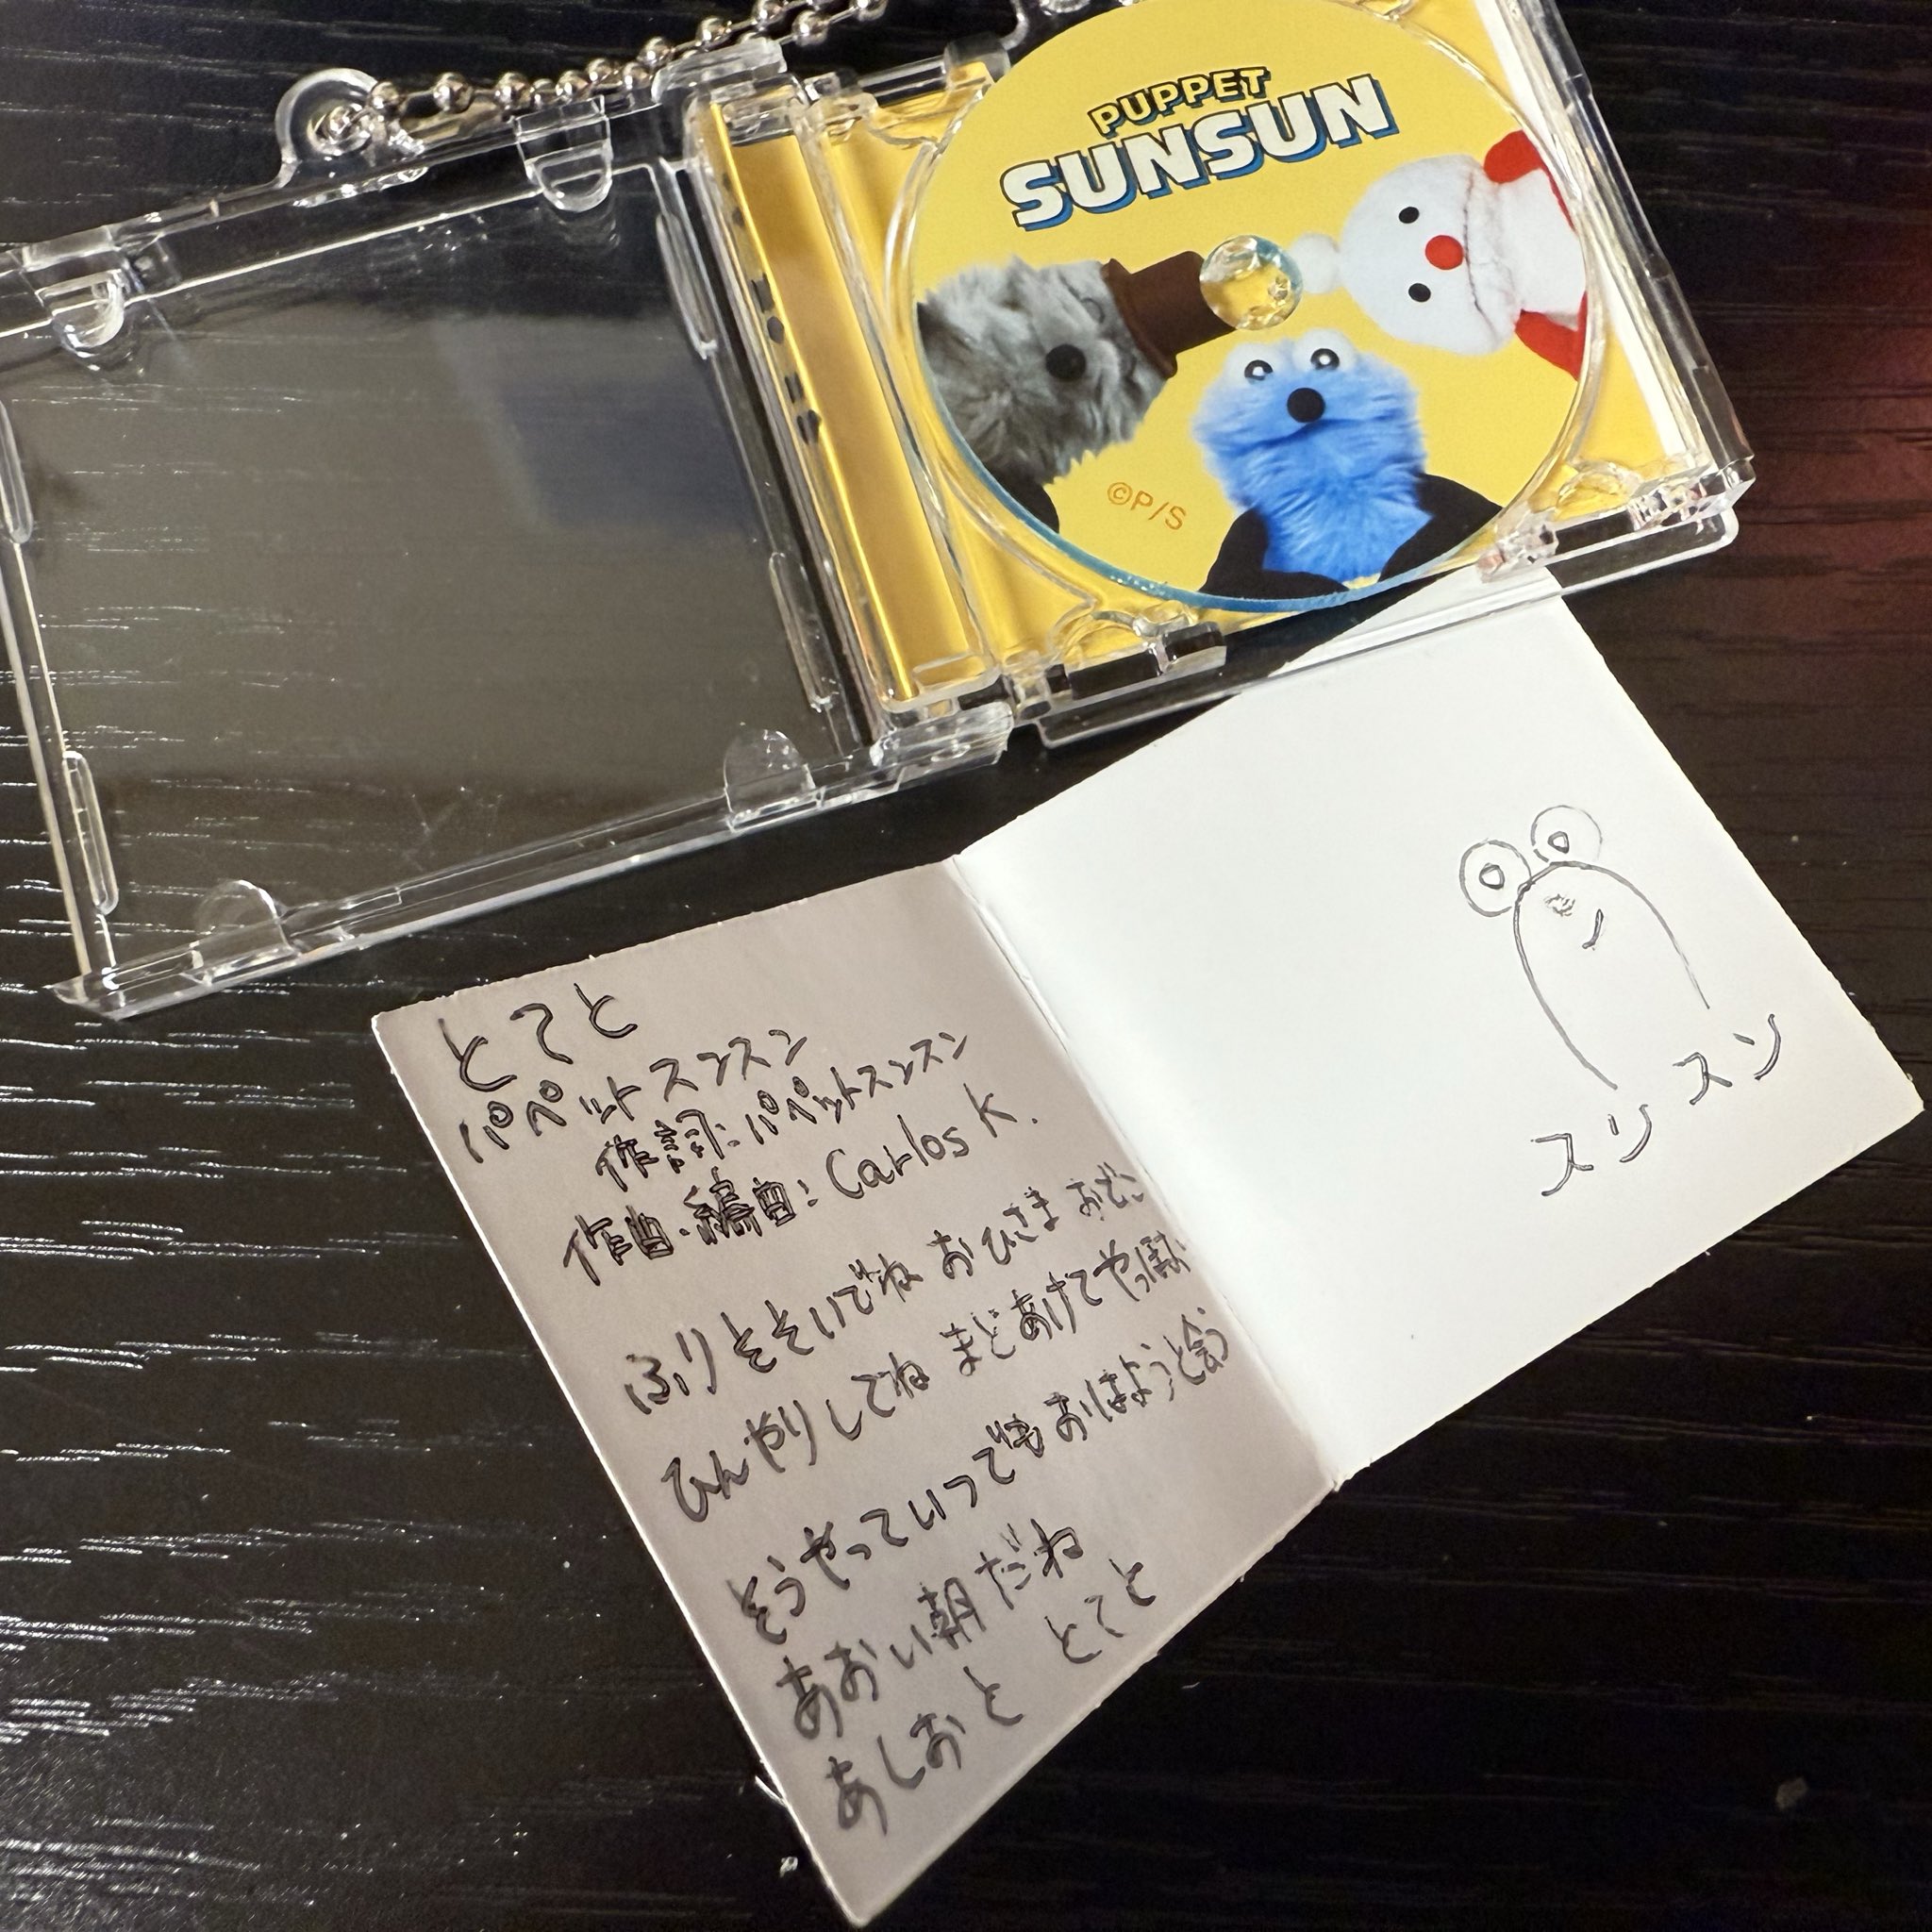 PUPPET
SUNSUN
©P/S
とてと
パペットスンスン
作詞:パペットスンスン
作曲・編曲:Carlos K.
ふりそそいでね おひさま
ひんやりしてね まどあけて
そうやっていつでもおはようと会う
あおい朝だね
あしおと とてと
スリスン